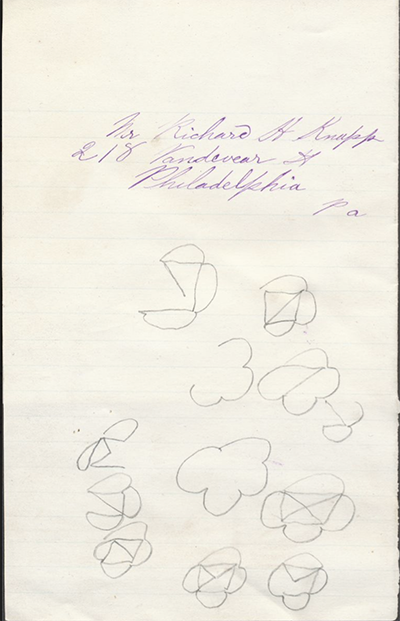 Mr Richard H Knupp
218 Vandevear St
Philadelphia
Pa